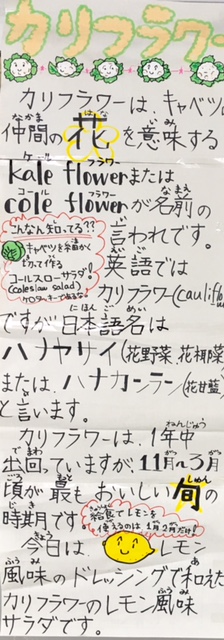 カリフラワー
カリフラワーは、キャベツ
仲間の花を意味する
kale flowerまたは
cole flowerが名前の
言われです。
こんなん知ってる??
キャベツを
作る
コールスローサラダ!
(coleslaw salad)
英語では
カリフラワー(cauliflo
ですが日本語名は
ハナヤサイ(花野菜、花椰菜
または、ハナカンラン(花甘藍)
と言います。
カリフラワーは、1年中
出回っていますが、11月〜3月
頃が最もおいしい旬の
時期です
給食でレモンを
使えるのは1月2月だけ!
今日は、レモン
風味のドレッシングで和えた
カリフラワーのレモン風味
サラダです。